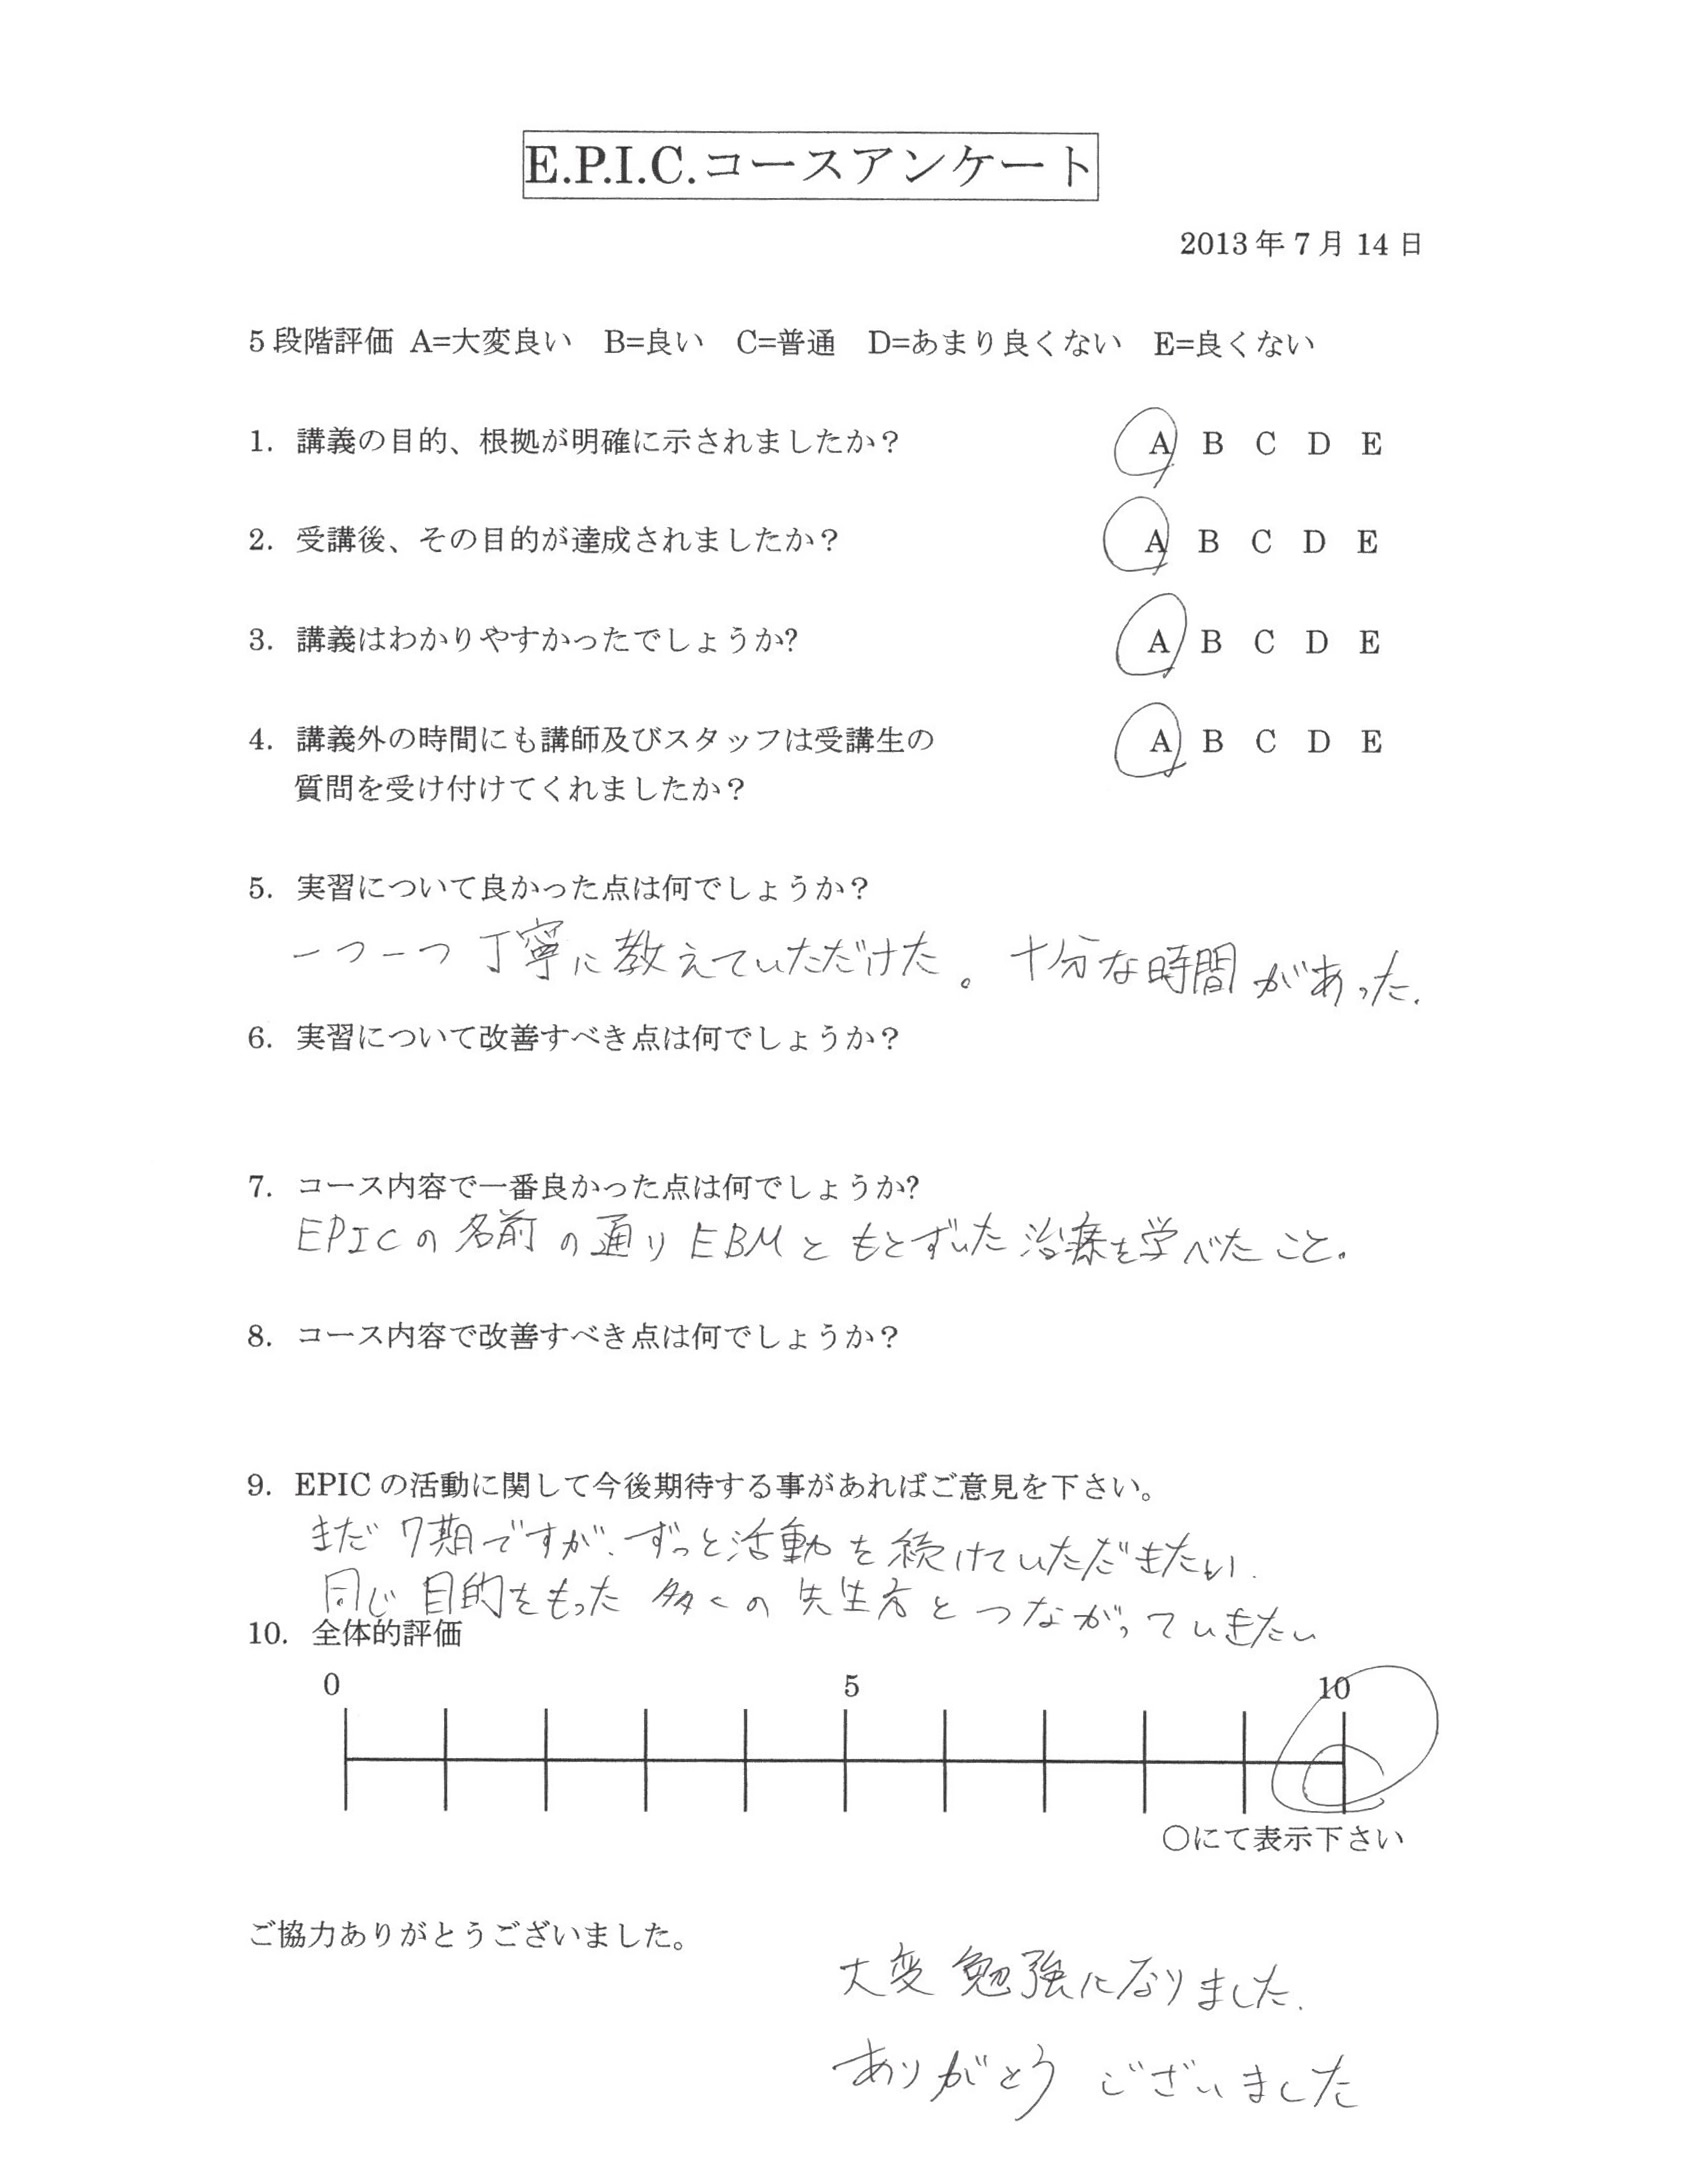 E.P.I.C.コースアンケート
2013年7月14日
5段階評価 A=大変良い B=良い C=普通 D=あまり良くない E=良くない
1. 講義の目的、根拠が明確に示されましたか？ A B C D E
2. 受講後、その目的が達成されましたか？ A B C D E
3. 講義はわかりやすかったでしょうか? A B C D E
4. 講義外の時間にも講師及びスタッフは受講生の A B C D E
質問を受け付けてくれましたか？
5. 実習について良かった点は何でしょうか？
一つ一つ丁寧に教えていただけた。十分な時間があった.
6. 実習について改善すべき点は何でしょうか？
7. コース内容で一番良かった点は何でしょうか?
EPICの名前の通りEBMともとずいた治療を学べたこと。
8. コース内容で改善すべき点は何でしょうか？
9. EPICの活動に関して今後期待する事があればご意見を下さい。
まだ7期ですが、ずっと活動を続けていただきたい.
同じ目的をもった多くの先生方とつながっていきたい
10. 全体的評価
0 5 10
○にて表示下さい
ご協力ありがとうございました。
大変勉強になりました.
ありがとうございました